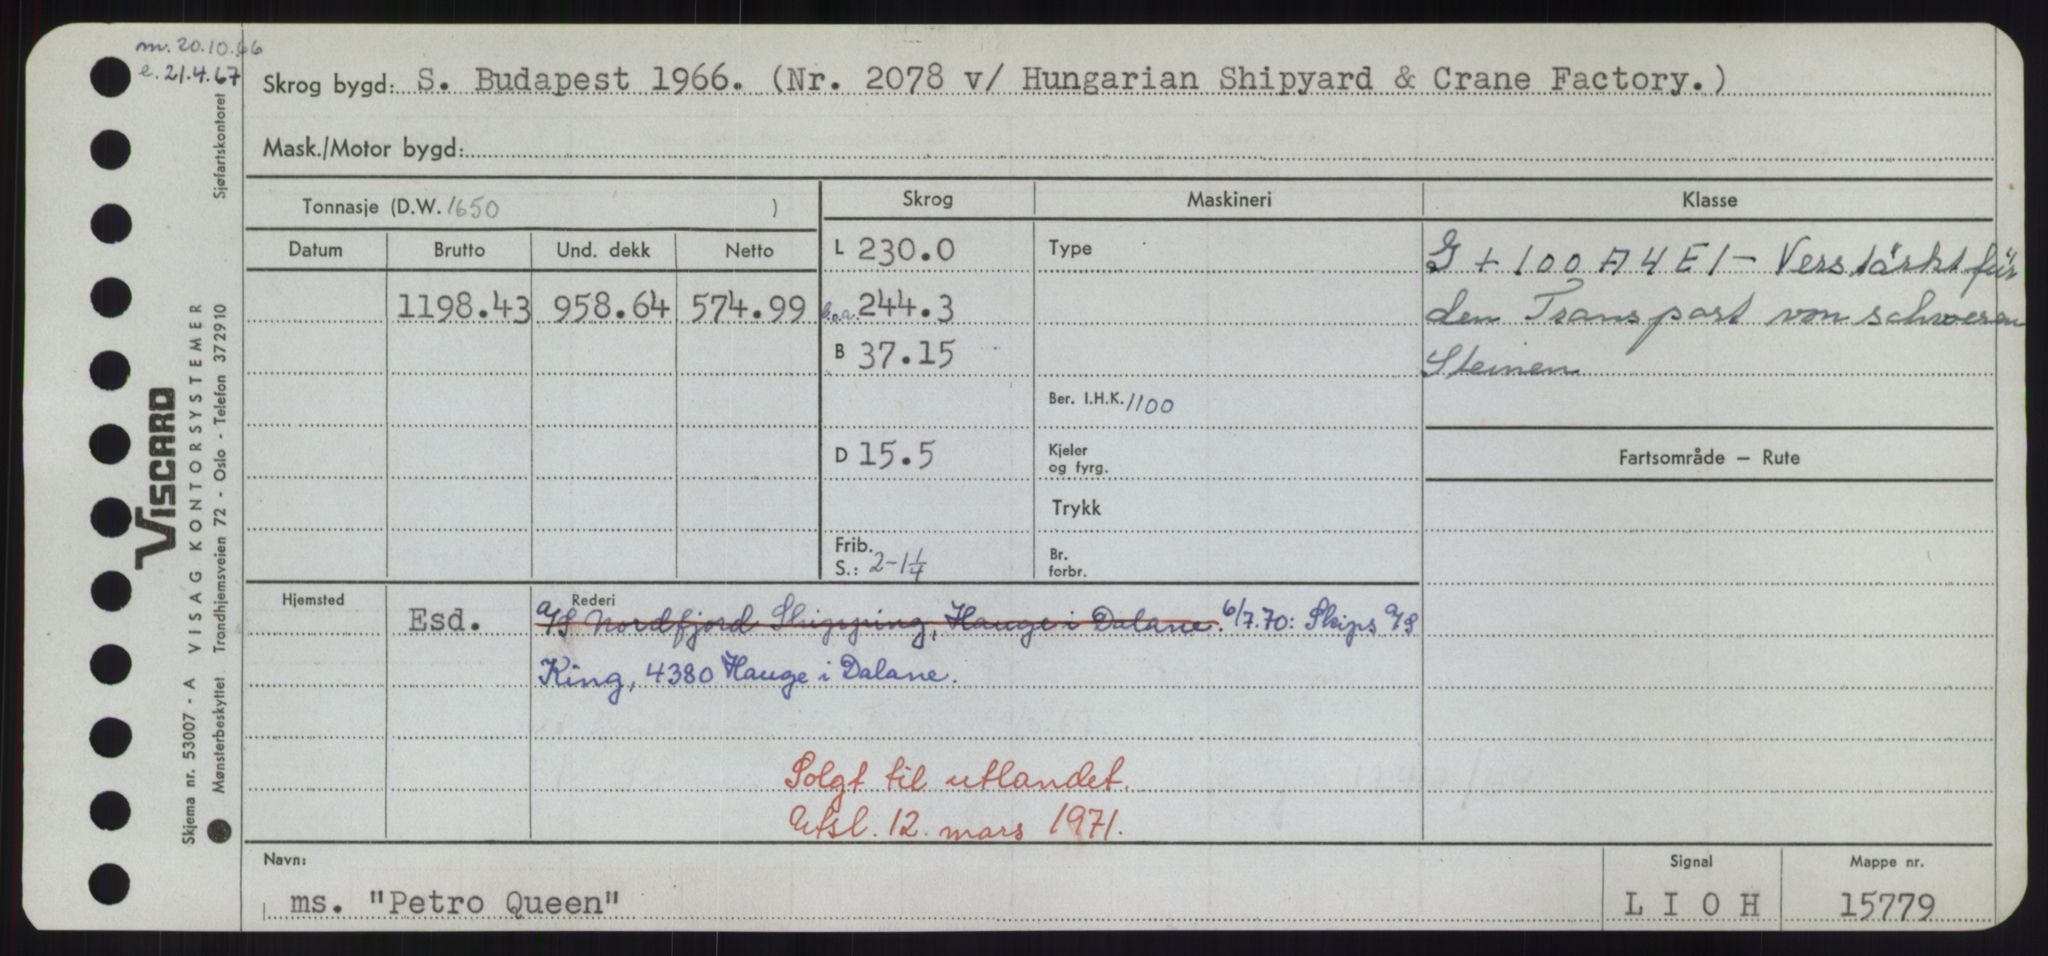 m. 20.10.66
e. 21.4.67
Skrog bygd: S. Budapest 1966. (Nr. 2078 v/ Hungarian Shipyard & Crane Factory.)
Mask./Motor bygd:
Tonnasje (D.W. 1650 )
Skrog
Maskineri
Klasse
Datum
Brutto
Und. dekk
Netto
1198.43
958.64
574.99
L 230.0
l.o.a. 244.3
B 37.15
D 15.5
Frib.
S.: 2-1¼
Type
Ber. I.H.K. 1100
Kjeler
og fyrg.
Trykk
Br.
forbr.
G + 100 A 4 E 1 - Verstärkt für
den Transport von schweren
Steinen
Fartsområde — Rute
Hjemsted
Esd.
Rederi
A/S Nordfjord Shipping, Hauge i Dalane. 6/7.70: Skips A/S
King, 4380 Hauge i Dalane.
Solgt til utlandet.
Utsl. 12. mars 1971.
Navn:
ms. "Petro Queen"
Signal
L I O H
Mappe nr.
15779
Sjøfartskontoret
VISCARD
VISAG KONTORSYSTEMER
Trondhjemsveien 72 - Oslo - Telefon 372910
Skjema nr. 53007 - A
Mønsterbeskyttet